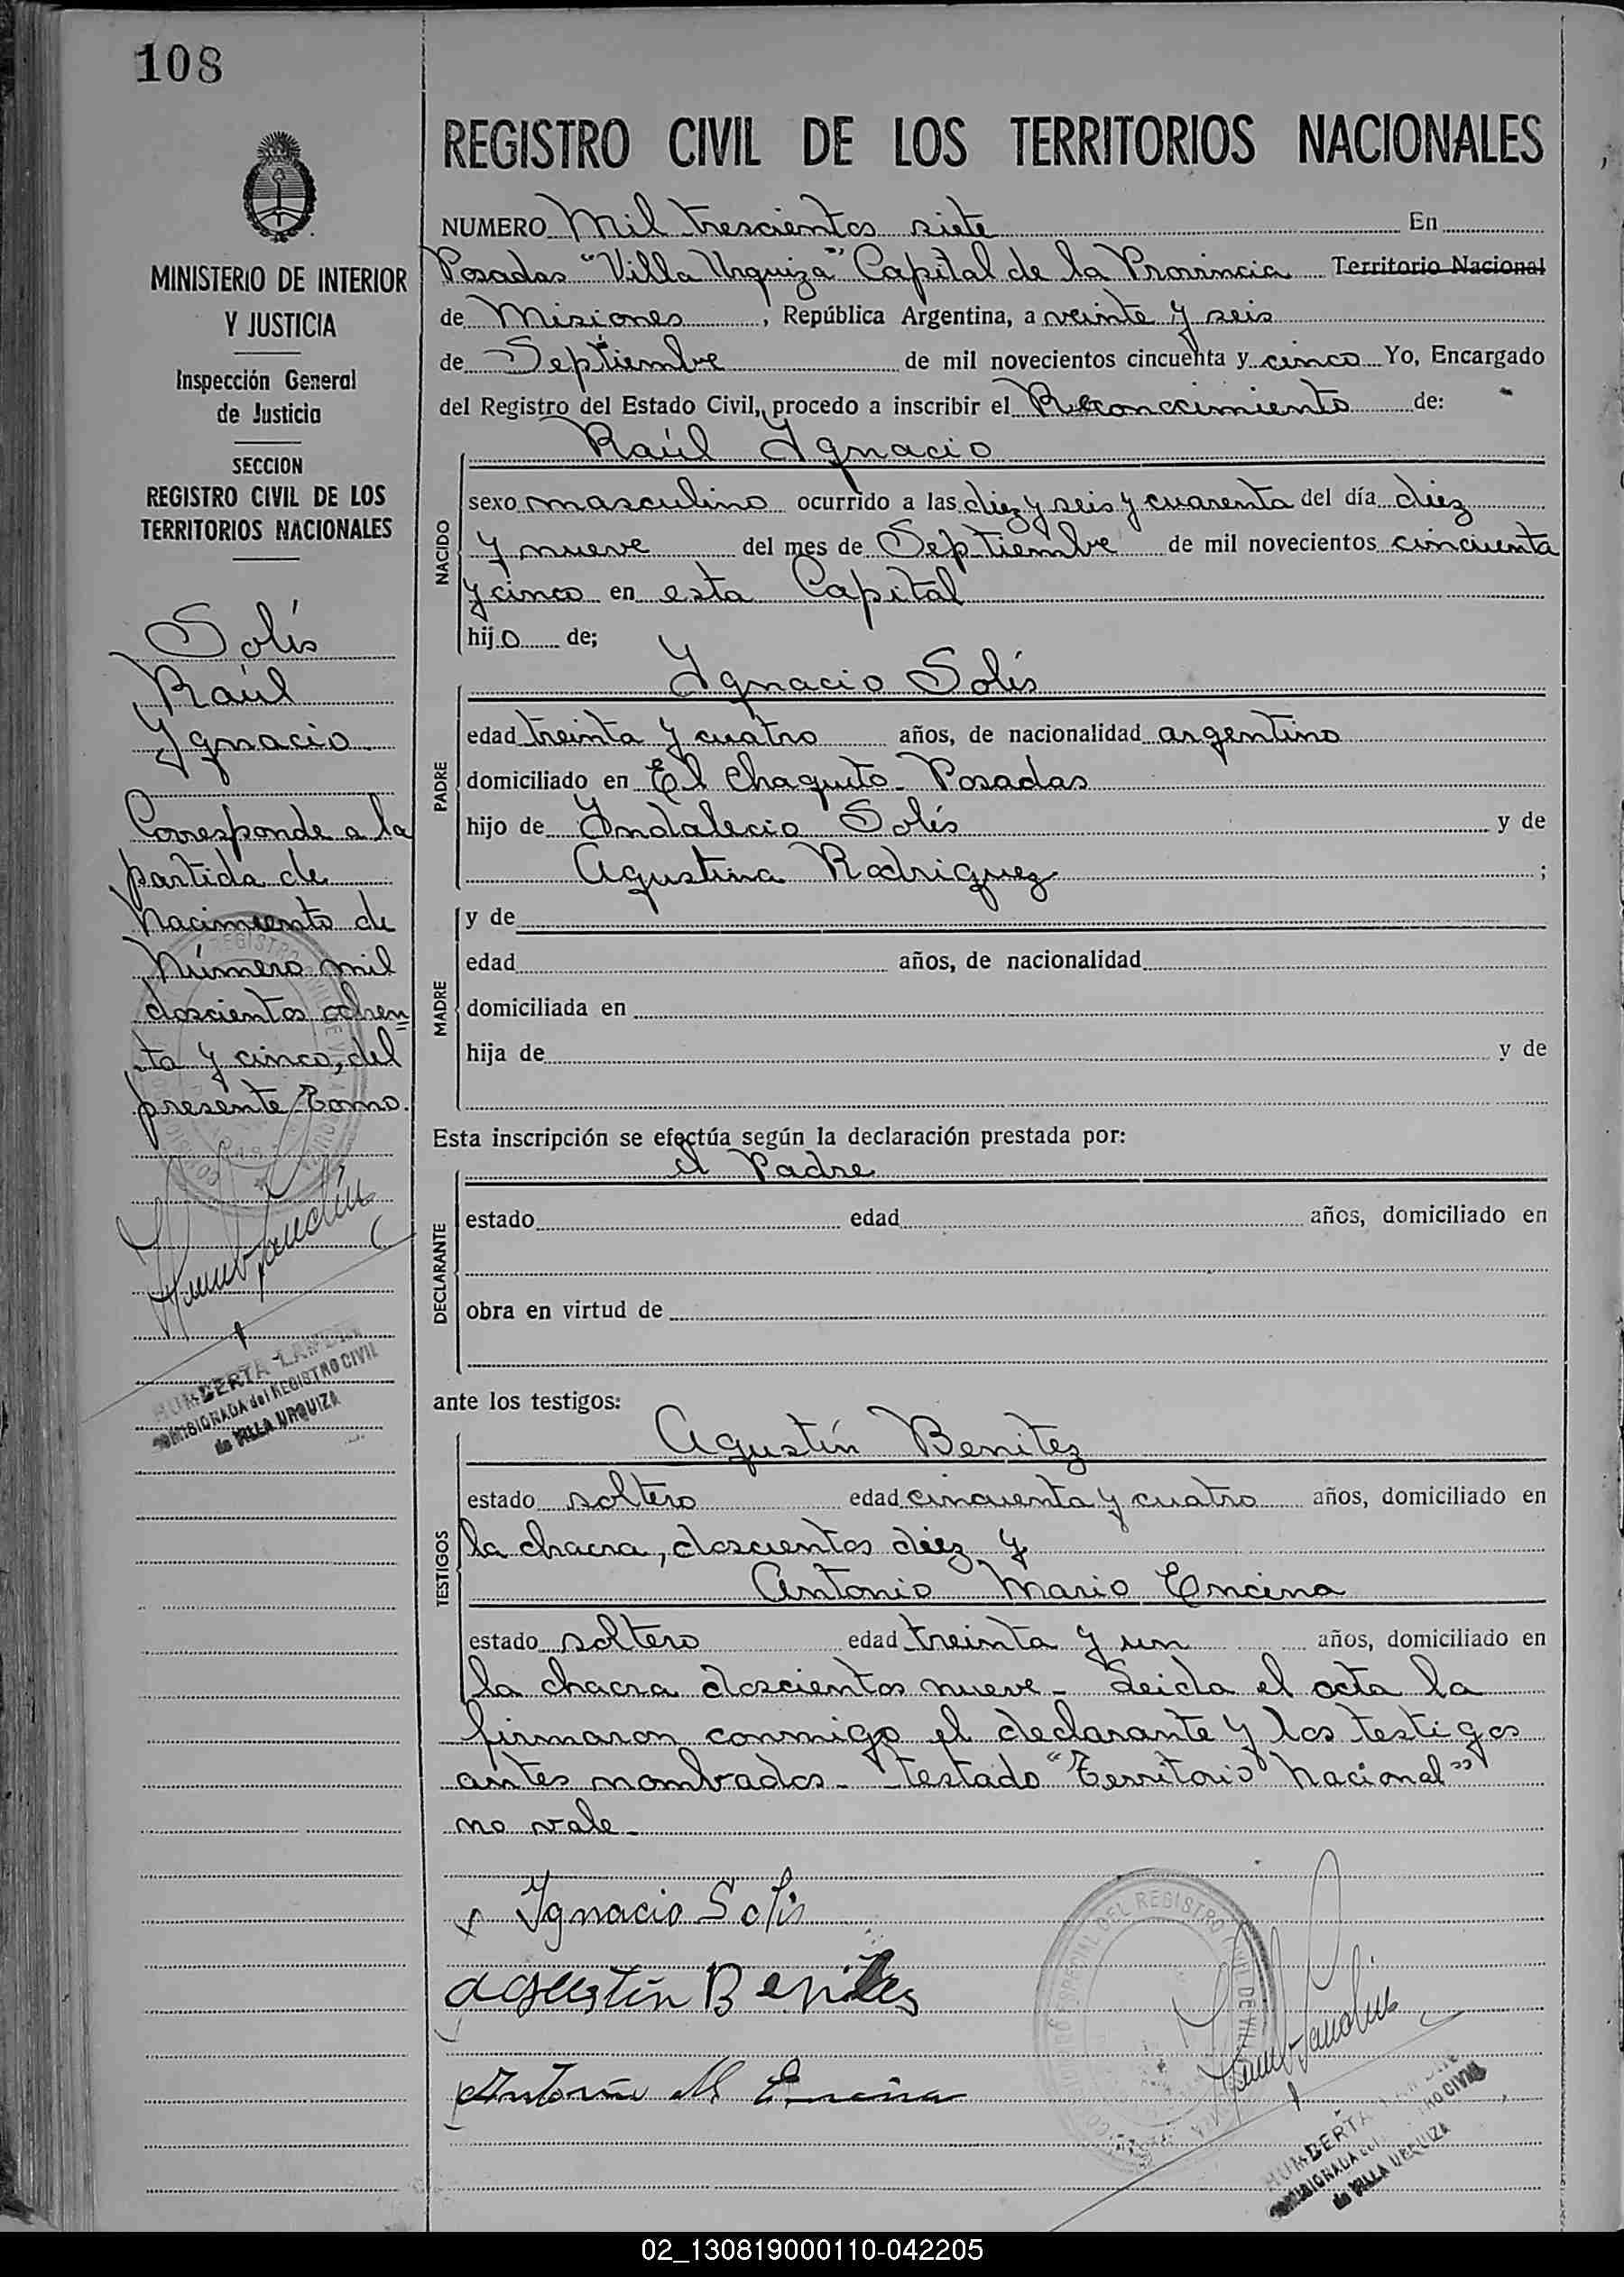 108
MINISTERIO DE INTERIOR
Y JUSTICIA
Inspección General
de Justicia
SECCION
REGISTRO CIVIL DE LOS
TERRITORIOS NACIONALES
Solís
Raúl
Ygnacio
Corresponde a la
partida de
Nacimiento de
Número mil
doscientos ochen
ta y cinco, del
presente Tomo.
HUMBERTA LANDIN
COMISIONADA del REGISTRO CIVIL
de VILLA URQUIZA
REGISTRO CIVIL DE LOS TERRITORIOS NACIONALES
NUMERO Mil trescientos siete En
Posadas "Villa Urquiza" Capital de la Provincia Territorio Nacional
de Misiones, República Argentina, a veinte y seis
de Septiembre de mil novecientos cincuenta y cinco Yo, Encargado
del Registro del Estado Civil, procedo a inscribir el Reconocimiento de:
Raúl Ygnacio
NACIDO
sexo masculino ocurrido a las diez y seis y cuarenta del día diez
y nueve del mes de Septiembre de mil novecientos cincuenta
y cinco en esta Capital
hijo de;
PADRE
Ygnacio Solís
edad treinta y cuatro años, de nacionalidad argentino
domiciliado en El Chaquito - Posadas
hijo de Yndalecio Solís y de
Agustina Rodriguez ;
MADRE
y de
edad años, de nacionalidad
domiciliada en
hija de y de
Esta inscripción se efectúa según la declaración prestada por:
el Padre
DECLARANTE
estado edad años, domiciliado en
obra en virtud de
ante los testigos:
TESTIGOS
Agustín Benitez
estado soltero edad cincuenta y cuatro años, domiciliado en
la chacra, doscientos diez y
Antonio Mario Encina
estado soltero edad treinta y un años, domiciliado en
la chacra doscientos nueve - Leida el acta la
firmaron conmigo el declarante y los testigos
antes nombrados - testado "Territorio Nacional"
no vale -
Ygnacio Solis
Agustín Benites
Antonio M Encina
HUMBERTA
COMISIONADA del REGISTRO CIVIL
de VILLA URQUIZA
02_130819000110-042205